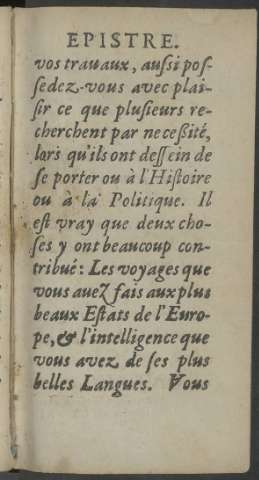 EPISTRE.
vos trauaux, aussi pos-
sedez-vous avec plai-
sir ce que plusieurs re-
cherchent par necessité,
lors qu'ils ont dessein de
se porter ou à l'Histoire
ou à la Politique. Il
est vray que deux cho-
ses y ont beaucoup con-
tribué: Les voyages que
vous avez fais aux plus
beaux Estats de l'Euro-
pe, & l'intelligence que
vous avez de ses plus
belles Langues. Vous